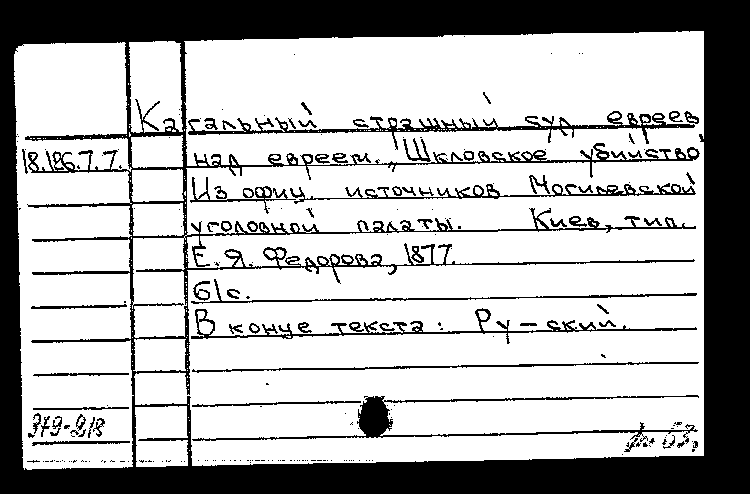 Кагальный страшный суд евреев
18.186.7.7. над евреем. "Шкловское убийство"
Из офиц. источников Могилевской
уголовной палаты. Киев, тип.
Е. Я. Федорова, 1877.
б/с.
В конце текста: Ру-ский.
379-218